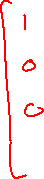 1
0
0